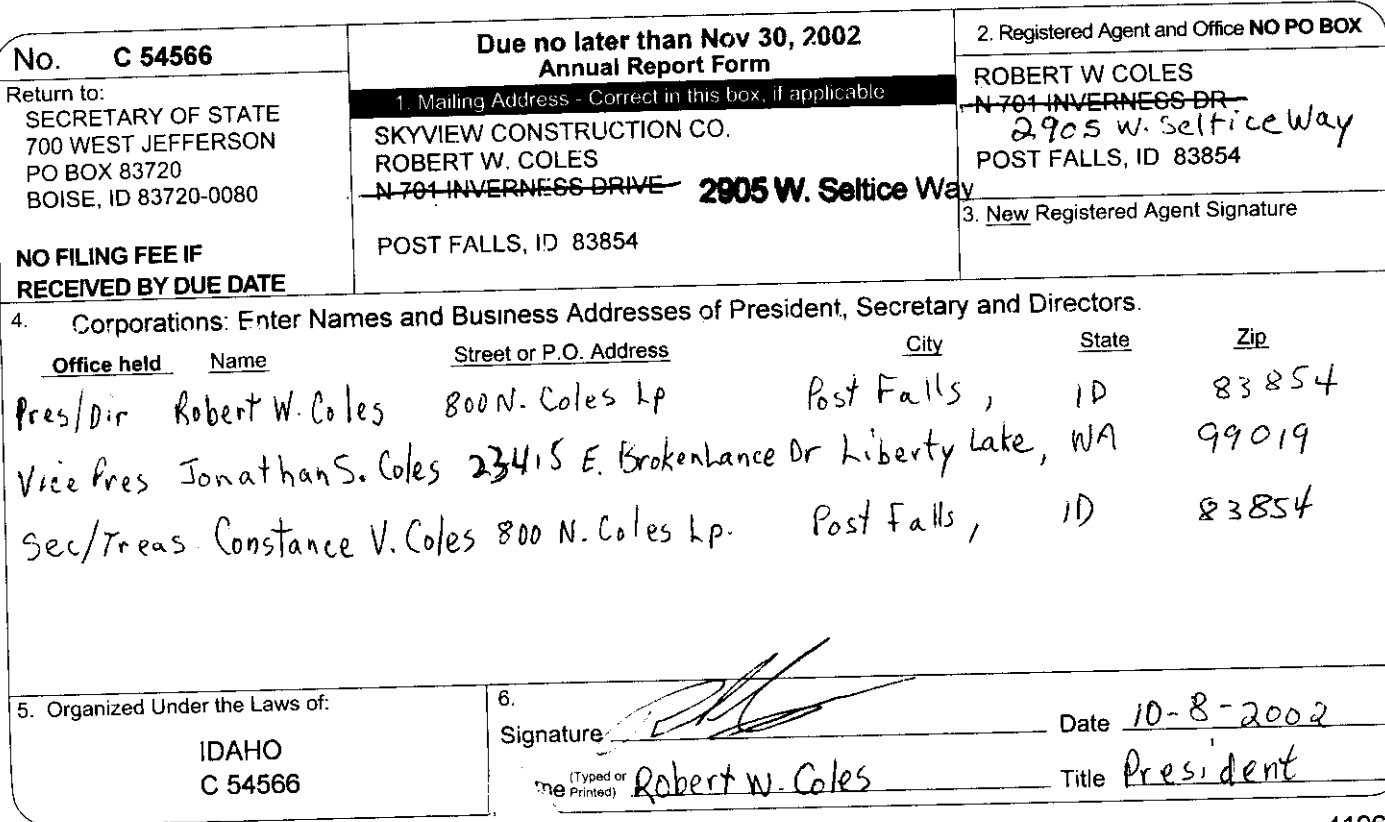 No. C 54566
Return to:
SECRETARY OF STATE
700 WEST JEFFERSON
PO BOX 83720
BOISE, ID 83720-0080
NO FILING FEE IF
RECEIVED BY DUE DATE
Due no later than Nov 30, 2002
Annual Report Form
1. Mailing Address - Correct in this box, if applicable
SKYVIEW CONSTRUCTION CO.
ROBERT W. COLES
N 701 INVERNESS DRIVE 2905 W. Seltice Way
POST FALLS, ID 83854
2. Registered Agent and Office NO PO BOX
ROBERT W COLES
N 701 INVERNESS DR
2905 W. Seltice Way
POST FALLS, ID 83854
3. New Registered Agent Signature
4. Corporations: Enter Names and Business Addresses of President, Secretary and Directors.
Office held Name Street or P.O. Address City State Zip
Pres/Dir Robert W. Coles 800 N. Coles Lp Post Falls, ID 83854
Vice Pres Jonathan S. Coles 23415 E. Broken Lance Dr Liberty Lake, WA 99019
Sec/Treas Constance V. Coles 800 N. Coles Lp. Post Falls, ID 83854
5. Organized Under the Laws of:
IDAHO
C 54566
6.
Signature Date 10-8-2002
me (Typed or Printed) Robert W. Coles Title President